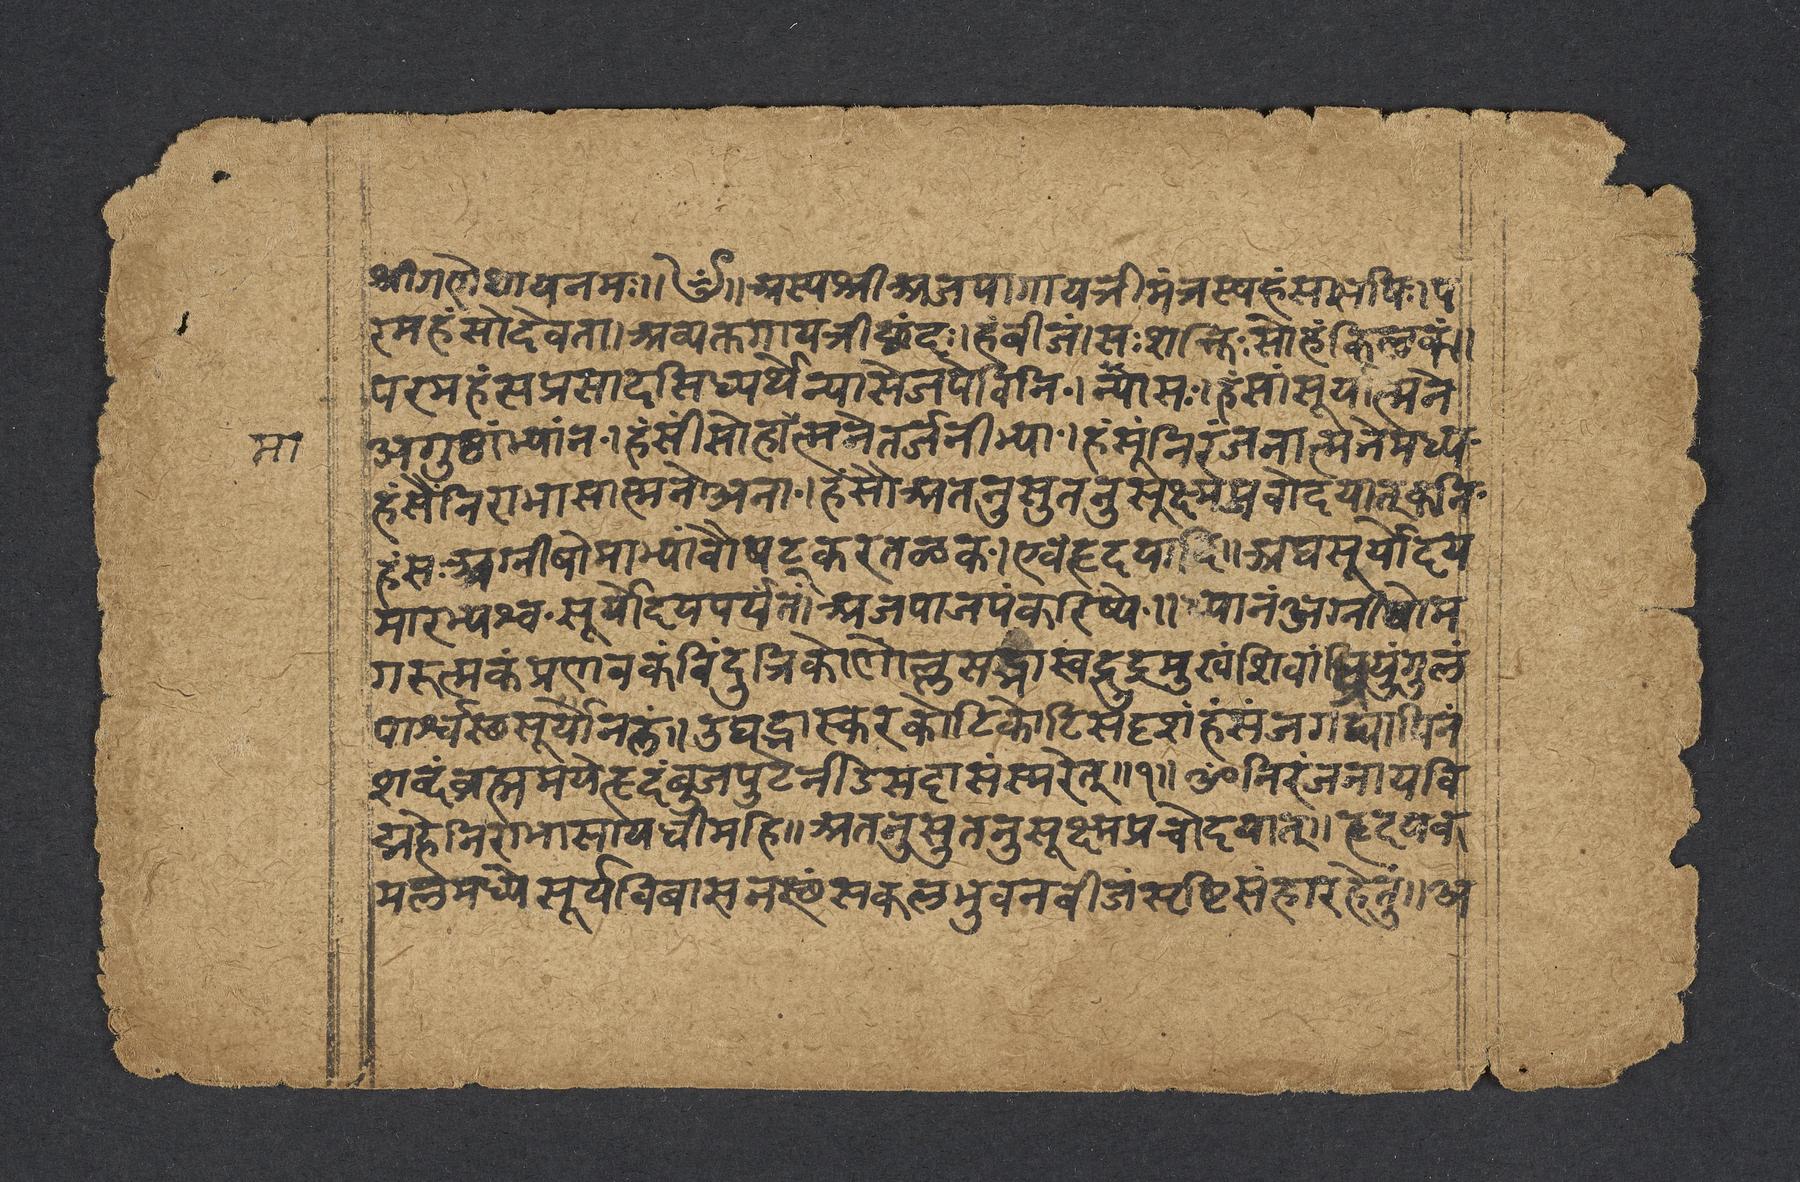 श्रीगणेशायनमः॥ ॐ॥ अस्यश्रीअजपागायत्रीमंत्रस्यहंसऋषिः। प
रमहंसोदेवता। अव्यक्तगायत्रीछंदः। हंबीजं। सःशक्तिः सोहंकिलकं॥
परमहंसप्रसादसिध्यर्थेन्यासेजपेविनि॰। न्यासः। हंसांसूर्यात्मने
अगुष्ठांभ्यांन॰। हंसींसोहात्मनेतर्जनीभ्या॰। हंसूंनिरंजनात्मनेमध्य॰
मा
हंसैंनिराभासात्मनेअना॰। हंसौअतनुसुतनुसूक्ष्मप्रचोदयात्कनि॰
हंसःअग्नीषोमाभ्यांवौषट्करतळक॰। एवंहृदयादि॥ अद्यसूर्योदय
मारभ्यश्व॰सूर्योदयपर्यंतं। अजपाजपंकरिष्ये॰॥ ध्यानं अग्नीषोम
गरुत्मकंप्रणवकंबिंदुत्रिकोणो
पार्श्वस्थसूर्यानलं॥ उद्यद्भास्करकोटिकोटिसदृशंहंसंजगद्व्यापिनं
शब्दंब्रह्ममयंहृदंबुजपुटेनीडेसदासंस्मरेत्॥१॥ ॐनिरंजनायवि
द्महेनिराभासायधीमहि॥ अतनुसुतनुसूक्ष्मप्रचोदयात्॥ हृदयक
मलमध्येसूर्यबिंबासनस्थंसकलभुवनबीजंसृष्टिसंहारहेतुं॥ अ